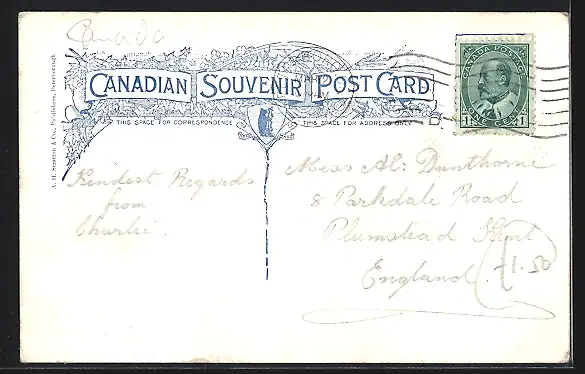 Canada
CANADIAN SOUVENIR POST CARD
THIS SPACE FOR CORRESPONDENCE
THIS SPACE FOR ADDRESS ONLY
A. H. Stratton & Co., Publishers, Peterborough
CANADA POSTAGE
1 ONE CENT 1
Kindest Regards
from
Charlie.
Miss Al. Dunthorne
8 Parkdale Road
Plumstead Kent
England.
1.50